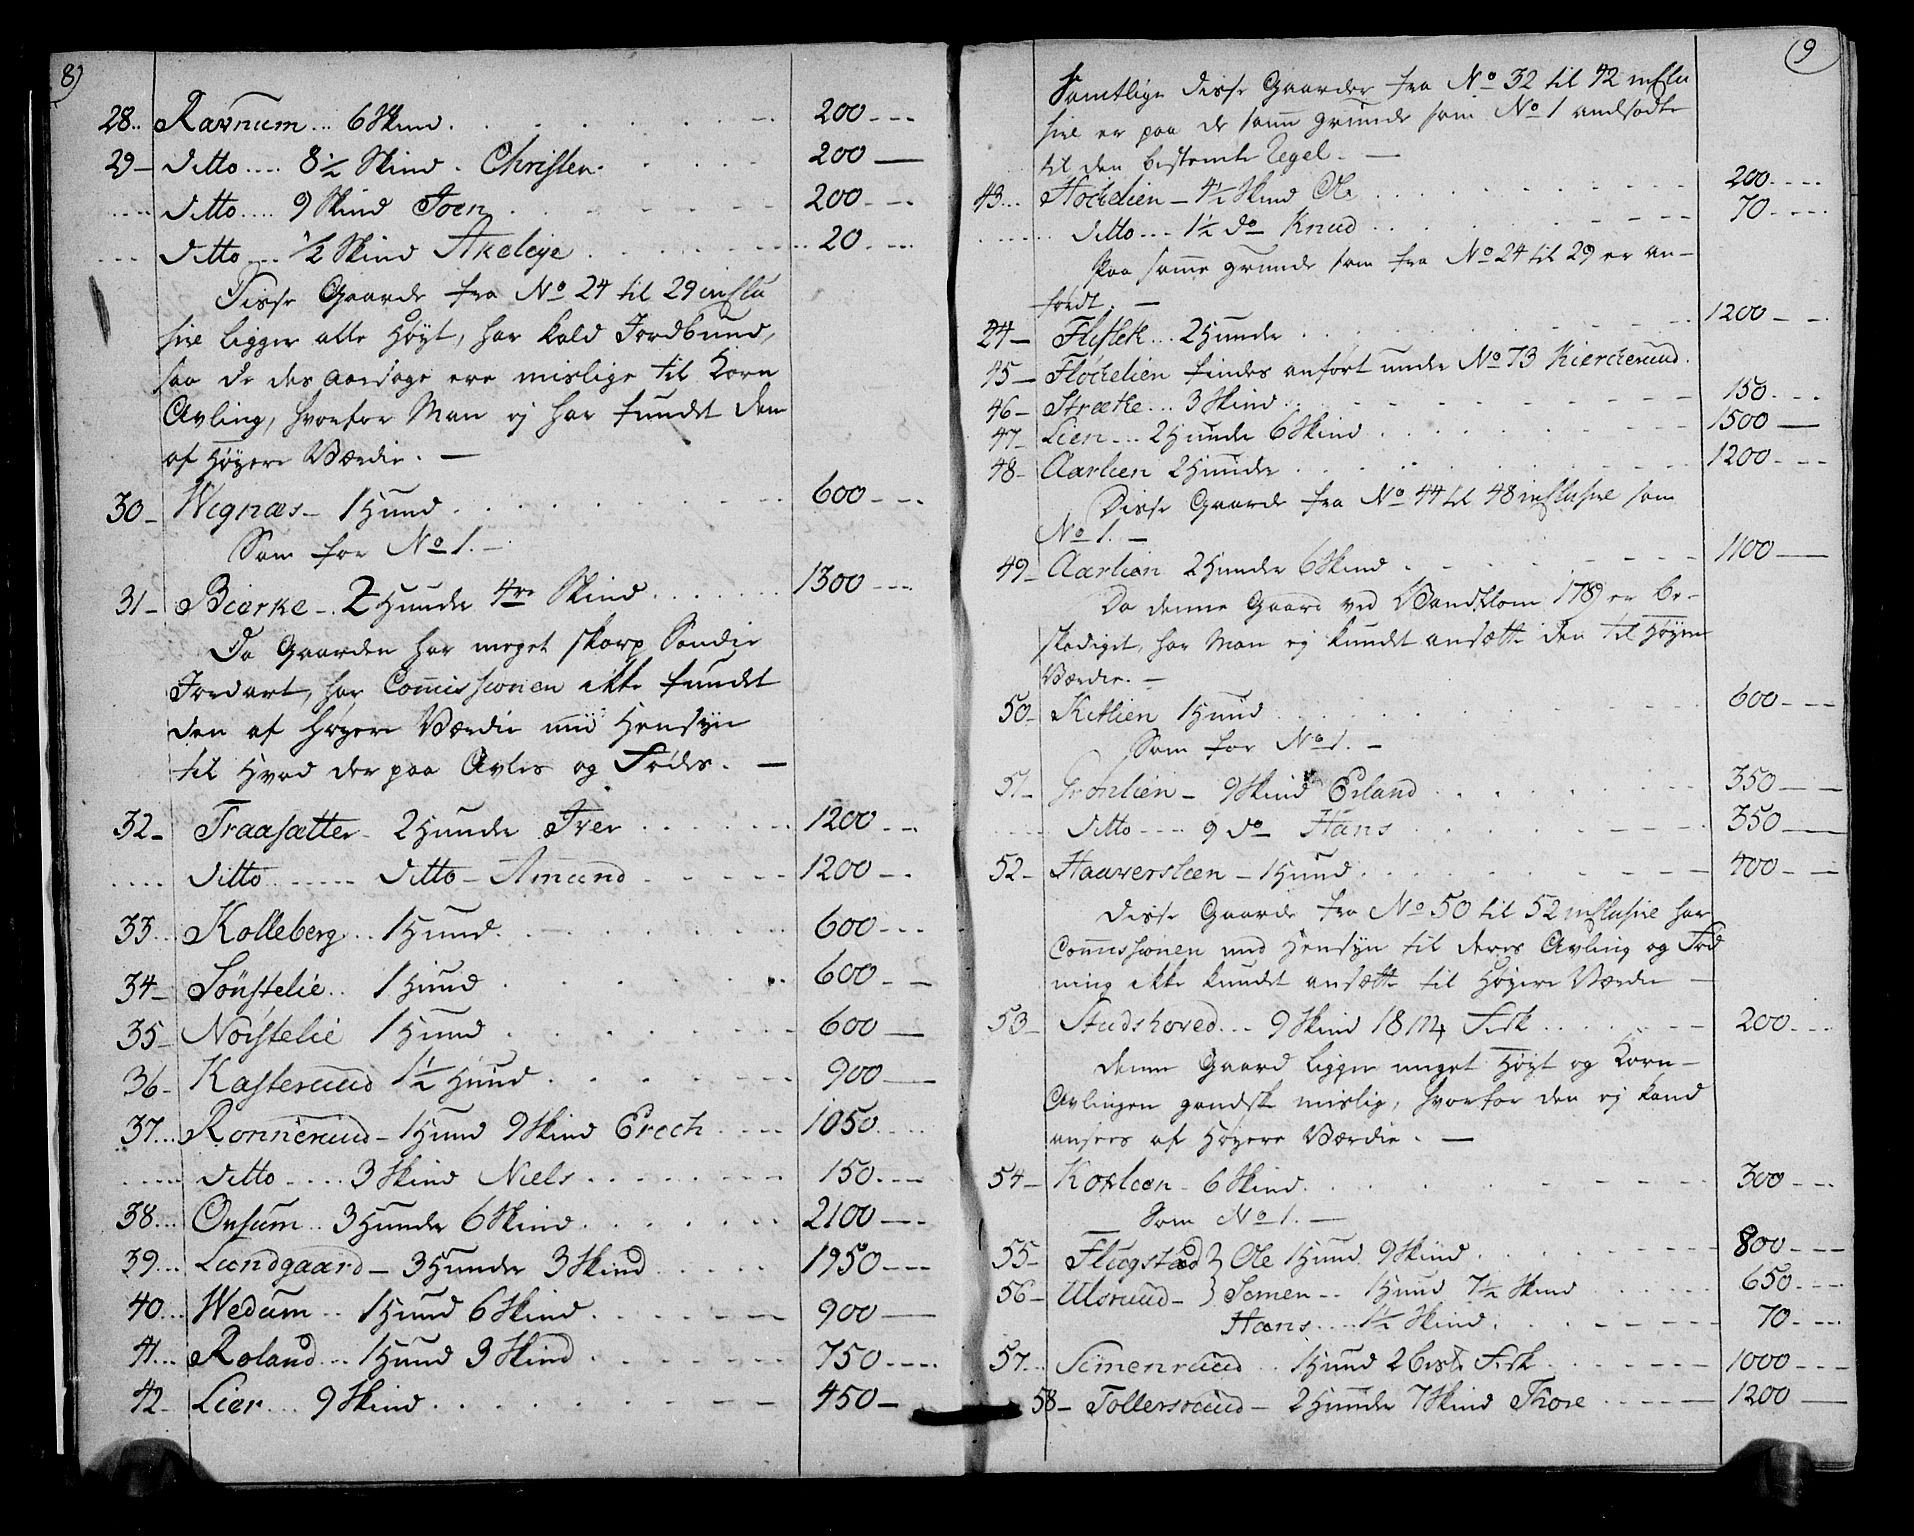 8)
28.. Ravnum... 6 Skind. 200---
29- ditto.... 8½ Skind. Christen. 200—
ditto.... 9 Skind Joen 200---
ditto.... ½ Skind Akeleye 20.---
Disse Gaarde fra No 24 til 29 inclu
sive ligger alle Høyt, har kold Jordbund,
saa de des Aarsage ere mislige til Korn
Avling, hvorfor Man ej har fundet dem
af Høyere Værdie. —
30- Wignæs- 1 Hund. 600---
Som for No 1. -
31- Bierke- 2 Hunde 4re Skind 1300---
Da Gaarden har meget skarp Sandie
Jordart, har Commissionen ikke fundet
den af høyere Værdie med Hensyn
til Hvad der paa Avles og Fødes. —
32- Traasætter- 2 Hunde Iver 1200---
ditto ditto- Amund 1200---
33... Kolleberg... 1 Hund. 600---
34- Sönstelie.. 1 Hund 600.---
35- Norstelie 1 Hund 600—
36- Kasterund 1½ Hund 900—
37... Ronnerud- 1 Hund 9 Skind Erech 1050....
ditto.... 3 Skind Niels 150.---
38... Onsum.. 3 Hunde 6 Skind 2100---
39... Lundgaard- 3 Hunde 3 Skind 1950---
40... Wedum... 1 Hund 6 Skind 900—
41... Roland... 1 Hund 3 Skind 750---
42- Lier... 9 Skind 450-
(9
Samtlige disse Gaarder fra No 32 til 42 inclu
sive er paa de samme grunde som No 1 andsadte
til den bestemte Regel. —
43... Høchelien- 4½ Skind Ole 200....
ditto... 1½ do Knud 70....
Paa samme grunde som fra No 24 til 29 er an-
ført. —
44- Flislek... 2 Hunde 1200---
45- Fløchelien findes anført under No 73 Kiercherud.
46- Strætke... 3 Skind 150....
47- Lien... 2 Hunde 6 Skind 1500—
48- Aarlien 2 Hunde 1200---
Disse Gaarde fra No 44 til 48 inclusive som
No 1. -
49- Aarlien 2 Hunde 6 Skind 1100—
Da denne Gaard ved Vandflom 1789 er be-
skadiget, har Man ej kundet ansætte den til Høyere
Værdie. —
50- Kitlien 1 Hund 600---
Som for No 1. -
51- Grønlien- 9 Skind Erland 350—
ditto.... 9 do Hans 350—
52- Haaversleen- 1 Hund 400---
Disse Gaarde fra No 50 til 52 inclusive har
Commissionen med Hensyn til deres Avling og Fød
ning ikke kundet ansætte til Høyere Værdie —
53- Studshoved... 9 Skind 18 m Fisk 200---
denne Gaard ligger meget Høyt og Korn-
Avlingen gandske mislig, hvorfor den ej kand
ansees af Høyere Værdie. —
54- Koxleen- 6 Skind 300---
Som No 1. —
55- Flugstad } Ole 1 Hund 9 Skind 800---
56- Ulsrund- } Semen.. 1 Hund 7½ Skind 650.---
Hans.... 1½ Skind. 70.---
57... Semenruud.. 1 Hund 2 Fisk 1000---
58- Tollersruud- 2 Hunde 7 Skind Thore 1200—